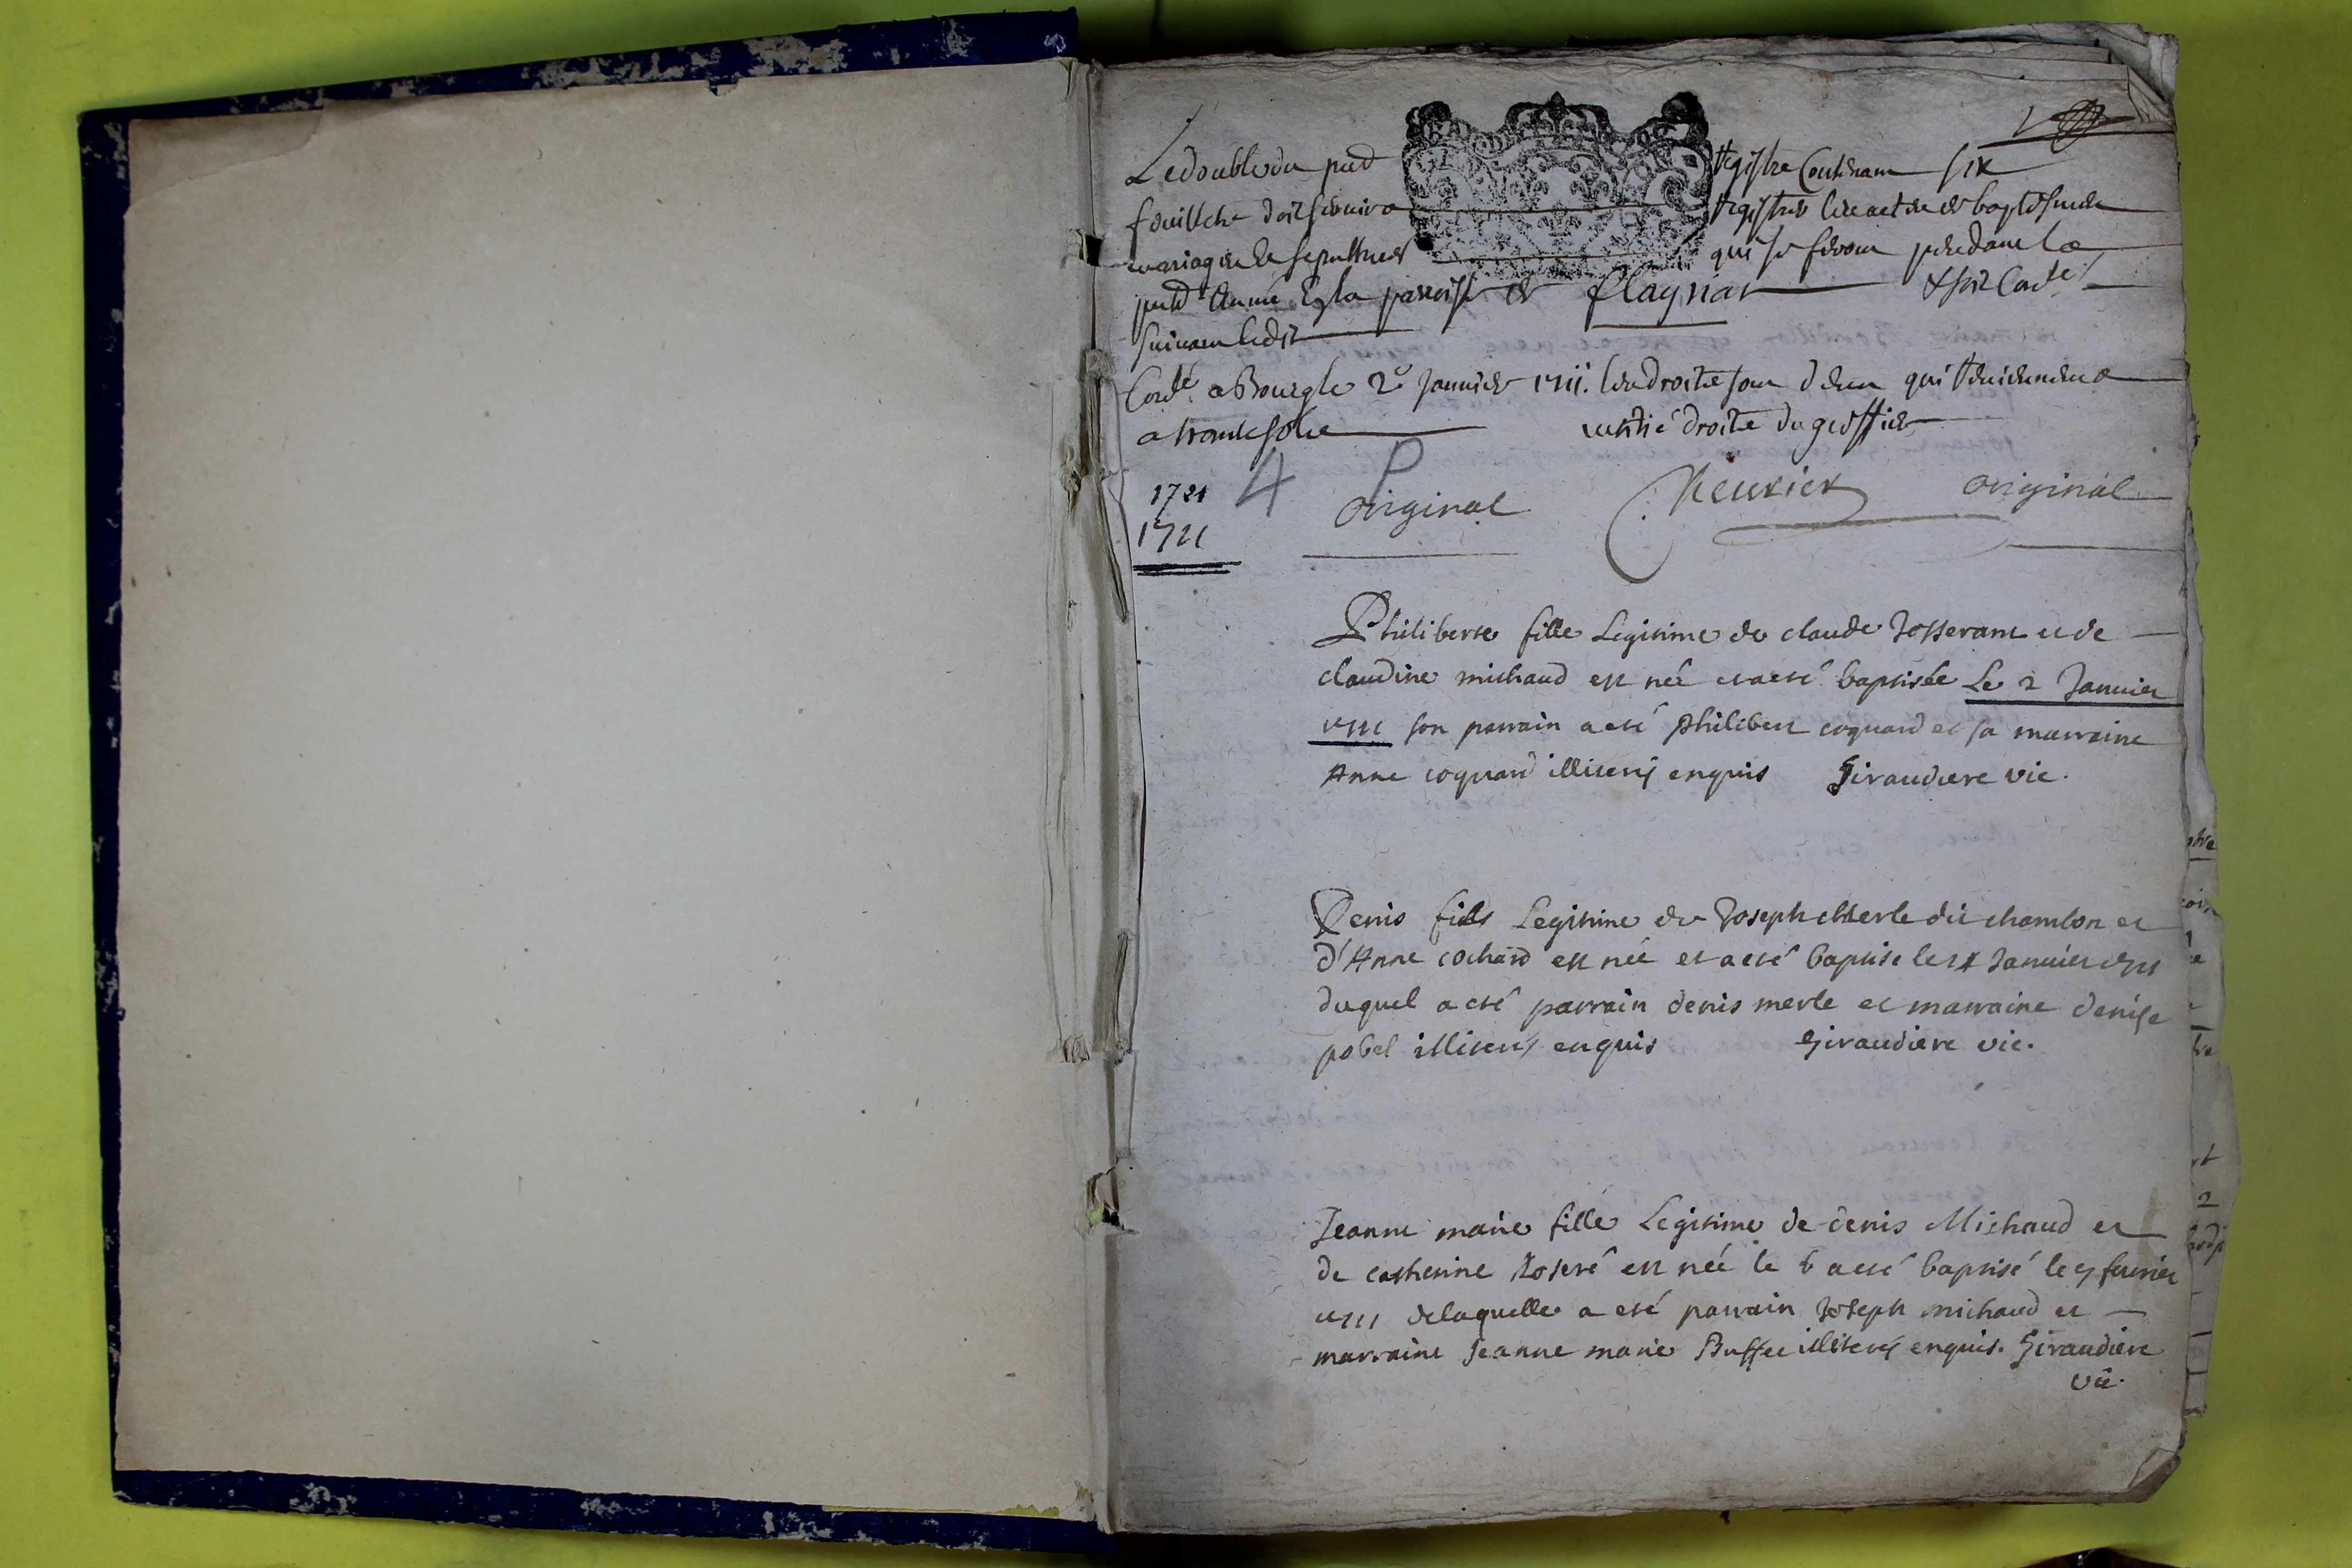 1
Le double du pnt Registre Contenant six
feuillets doit servir a Registrer les actes de baptesmes
mariages et sepultures qui se feront pendant la
pnte Année En la paroisse de flayriat & soit Cotté
suivant ledit
Cotté a Bourg le 2e Janvier 1711. les droits sont deux qui reviennent a
a trante sols moitié droits du greffier
1721 4 P
original original
1711
Philiberte fille Legitime de claude Josserant et de
claudine michaud est née et a esté baptisée Le 2 Janvier
1711 son parrain a esté philibert coquard et sa marraine
Anne coquard illiterés enquis Giraudiere vic.
Denis fils Legitime de Joseph Merle dit chambon et
d'Anne cochard est née et a esté baptisé le Janvier 1711
duquel a esté parrain denis merle et marraine denise
pobel illiterés enquis Giraudiere vic.
Jeanne marie fille Legitime de denis Michaud et
de catherine est née le 6 a esté baptisé le 7 fevrier
1711 de laquelle a esté parrain Joseph michaud et
marraine Jeanne marie Buffet illiterés enquis. Giraudiere
vic.